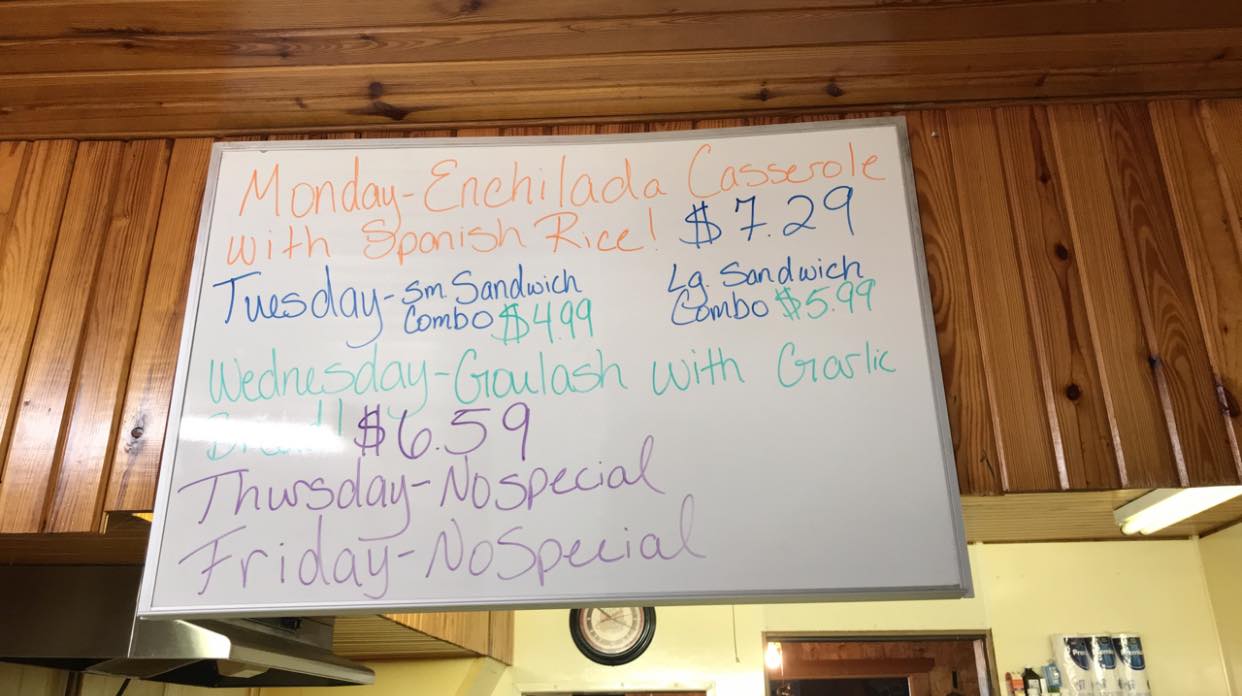 Monday-Enchilada Casserole
with Spanish Rice! $7.29
Tuesday- Sm. Sandwich Combo $4.99
Lg. Sandwich Combo $5.99
Wednesday-Goulash with Garlic
Bread! $6.59
Thursday-No special
Friday-No Special